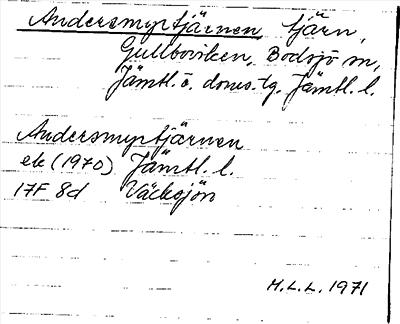 Andersmyrtjärnen tjärn,
Gullboviken, Bodsjö sn,
Jämtl. ö. doms.-tg. Jämtl. l.
Andersmyrtjärnen
ek (1970) Jämtl. l.
17F 8d Väcksjön
H.L.L. 1971